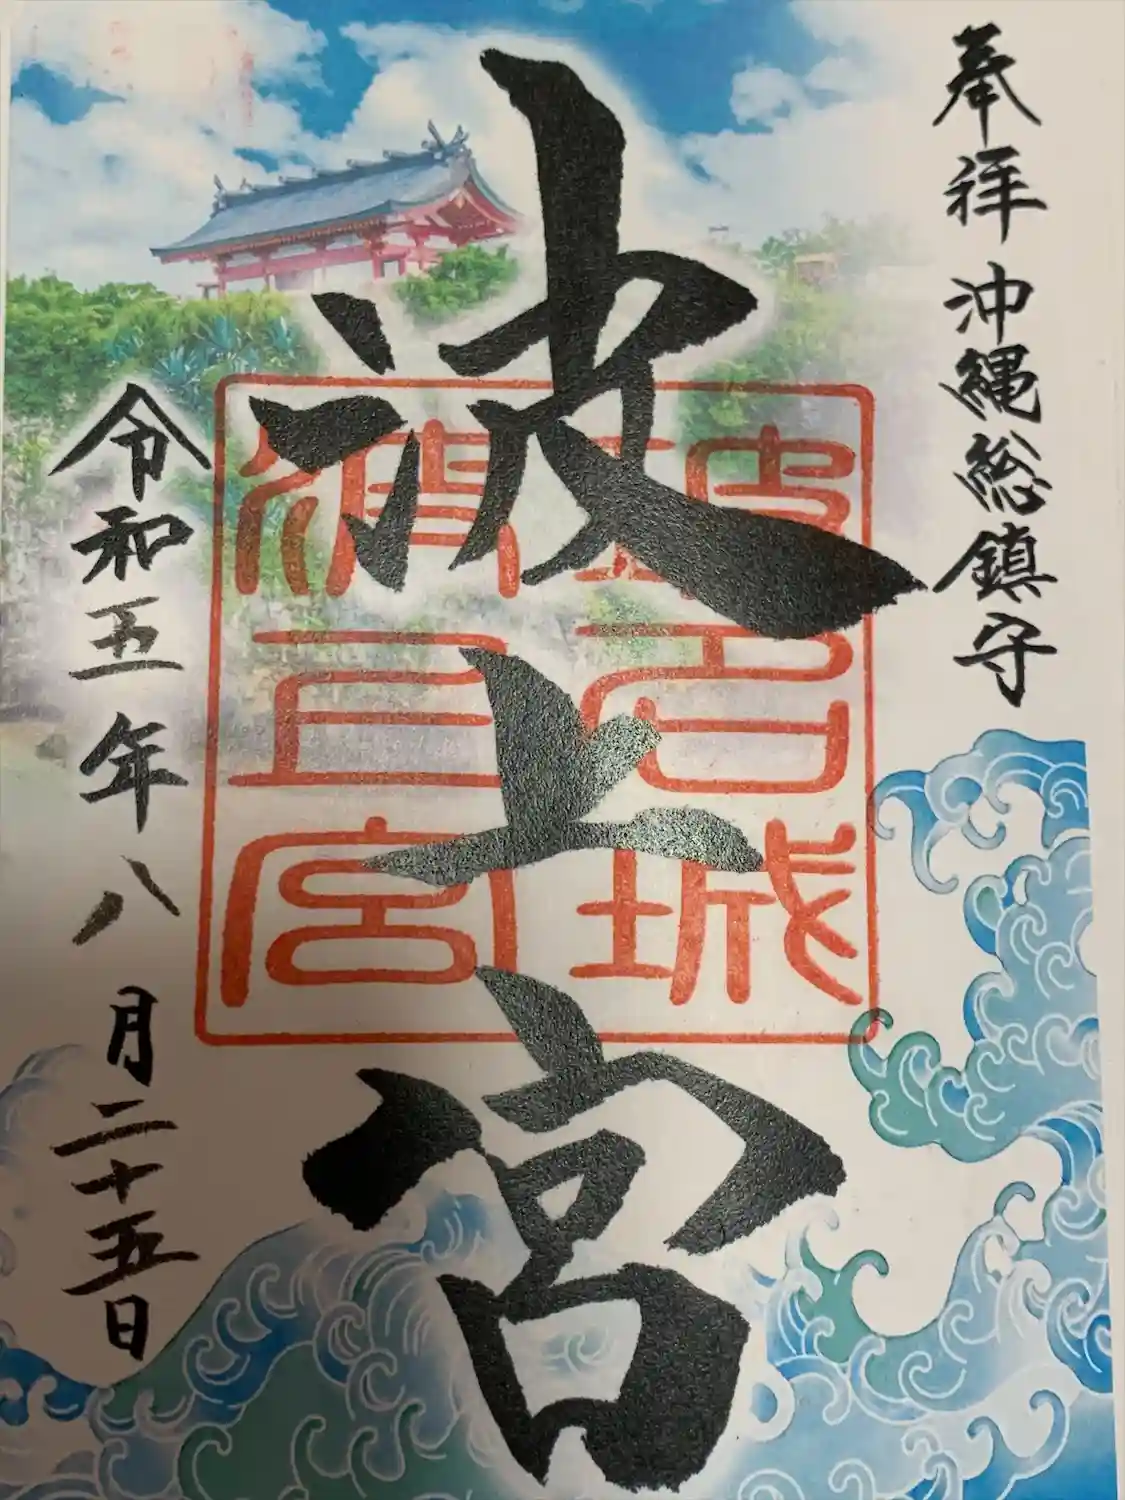 奉拝 沖縄総鎮守
波上宮
波上宮
令和五年八月二十五日